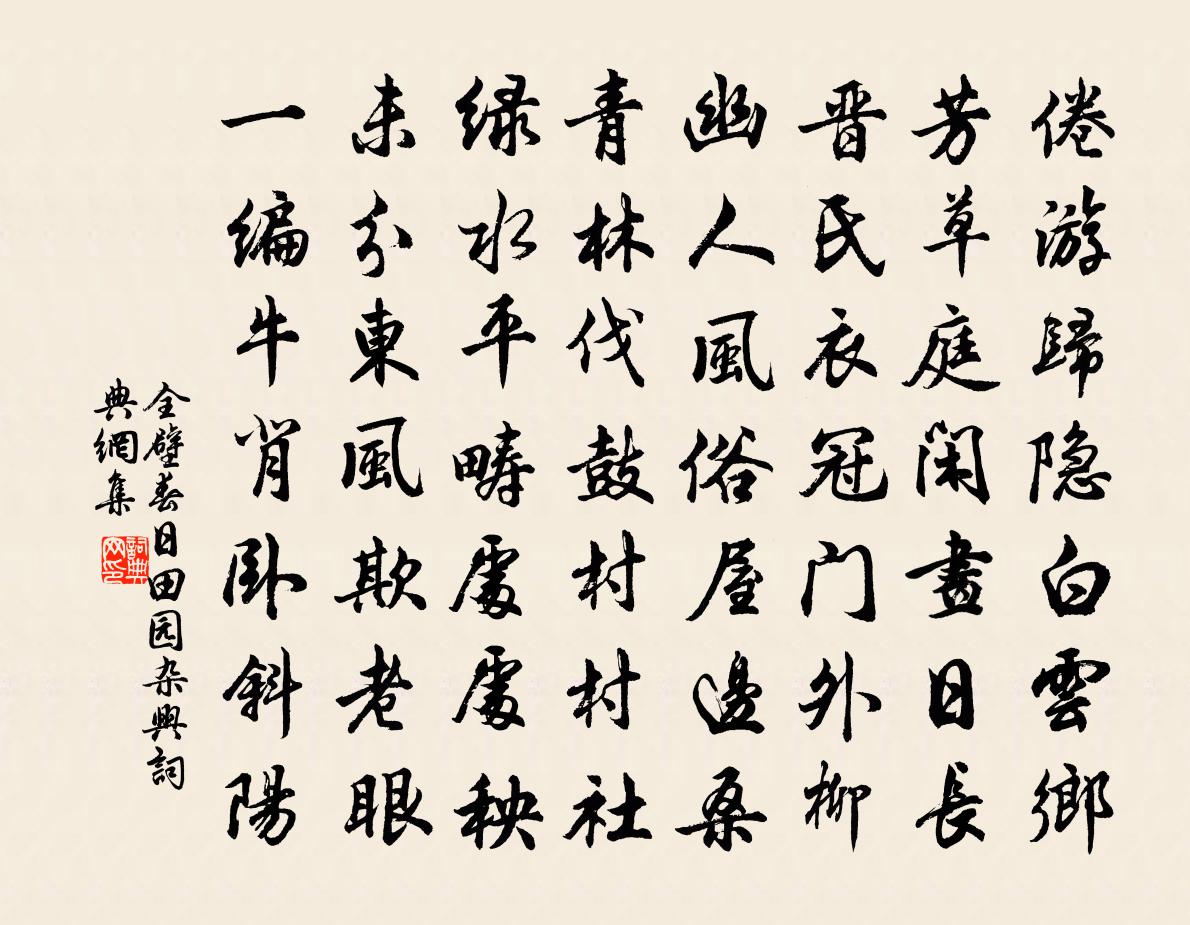 倦游歸隐白雲鄉
芳草庭闲晝日長
晋氏衣冠门外柳
幽人風俗屋邊桑
青林伐鼓村村社
绿水平疇處處秧
未分東風欺老眼
一编牛背卧斜陽
全璧春日田园杂興詞
典網集
詞典
网印